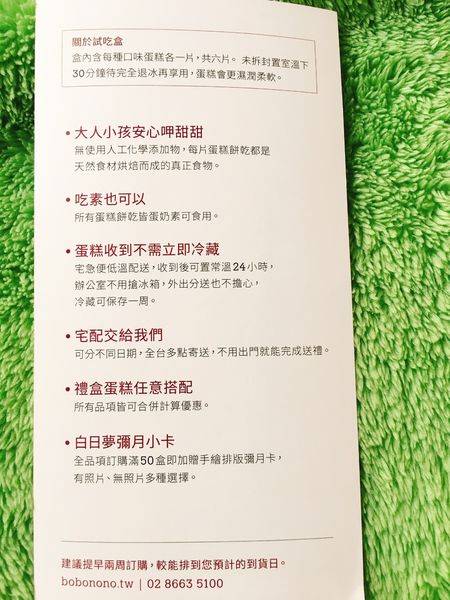 關於試吃盒
盒內含每種口味蛋糕各一片，共六片。 未拆封置室溫下
30分鐘待完全退冰再享用，蛋糕會更濕潤柔軟。
• 大人小孩安心呷甜甜
無使用人工化學添加物，每片蛋糕餅乾都是
天然食材烘焙而成的真正食物。
• 吃素也可以
所有蛋糕餅乾皆蛋奶素可食用。
• 蛋糕收到不需立即冷藏
宅急便低溫配送，收到後可置常溫24小時，
辦公室不用搶冰箱，外出分送也不擔心，
冷藏可保存一周。
• 宅配交給我們
可分不同日期，全台多點寄送，不用出門就能完成送禮。
• 禮盒蛋糕任意搭配
所有品項皆可合併計算優惠。
• 白日夢彌月小卡
全品項訂購滿50盒即加贈手繪排版彌月卡，
有照片、無照片多種選擇。
建議提早兩周訂購，較能排到您預計的到貨日。
bobonono.tw | 02 8663 5100